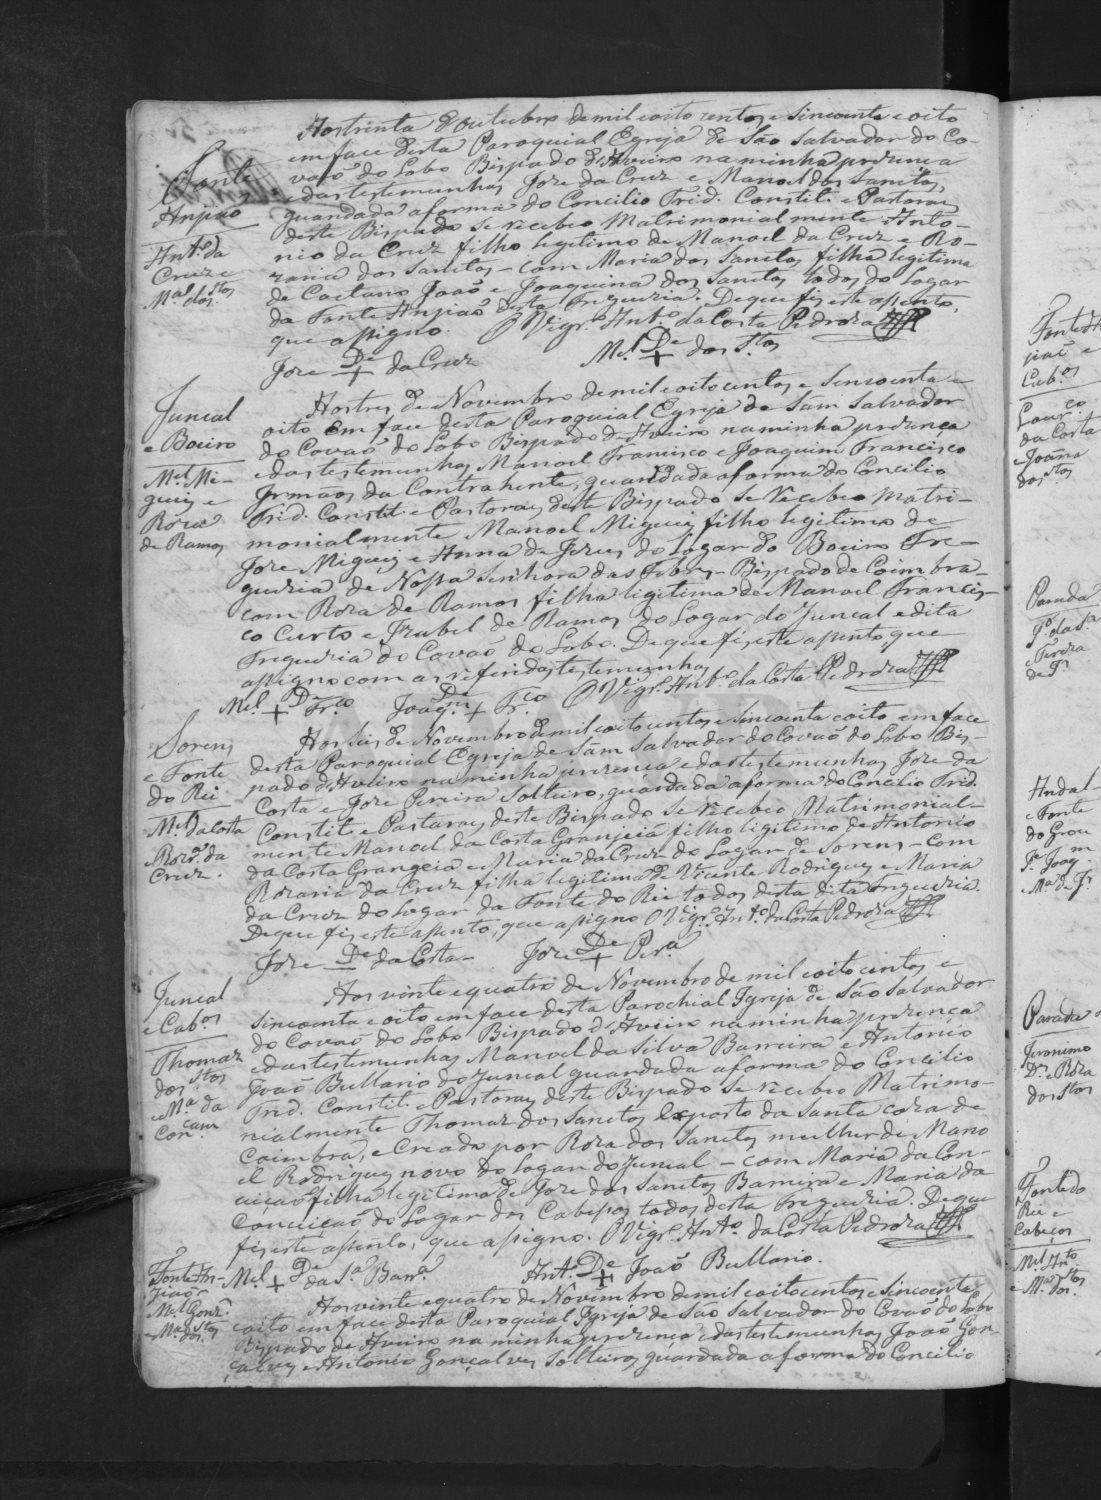 Fonte
Anjiaõ
Ant.º da
Cruz e
M.ª dos S.tos
Aos trinta d'outubro de mil oito centos e sincoenta e oito
em face desta Paroquial Egreja de São Salvador do Co-
vaõ do Lobo Bispado d'Aveiro na minha prezença
e das testemunhas Joze da Cruz e Manoel dos Santos,
guardada a forma do Concilio Trid. Constit. e Pastoraes
deste Bispado se recebeo Matrimonialmente Anto-
nio da Cruz filho legitimo de Manoel da Cruz e Ro-
zaria dos Santos - com Maria dos Santos filha legitima
de Caetano Joaõ e Joaquina dos Santos todos do Lugar
da Fonte Anjiaõ desta Freguezia. De que fiz este assento,
que assigno. O Vigr.º Ant.º da Costa Pedroza
Joze De + da Cruz M.el De + dos S.tos
Juncal
e Boeiro
M.el Mi-
gueis e
Roza
de Ramos
Aos tres de Novembro de mil oito centos e sincoenta e
oito em face desta Paroquial Egreja de Sam Salvador
do Covaõ do Lobo Bispado d'Aveiro na minha prezença
e das testemunhas Manoel Francisco e Joaquim Francisco
Irmãos da Contrahente, guardada a forma do Concilio
Trid. Constit. e Pastoraes deste Bispado se recebeo Matri-
monialmente Manoel Migueis filho legitimo de
Joze Migueis e Anna de Jezus do Lugar do Boeiro Fre-
guezia de Nossa Senhora das Febres - Bispado de Coimbra -
com Roza de Ramos filha legitima de Manoel Francis-
co Curto e Izabel de Ramos do Lugar do Juncal e dita
Freguezia do Covaõ do Lobo. De que fiz este assento que
assigno com as referidas testemunhas
O Vigr.º Ant.º da Costa Pedroza
M.el De + Fr.co Joaq.m De + Fr.co
Sorens
e Fonte
do Rei
M.el da Costa
e Roz.ª da
Cruz.
Aos seis de Novembro de mil oito centos e sincoenta e oito em face
desta Paroquial Egreja de Sam Salvador do Covaõ do Lobo Bis-
pado d'Aveiro na minha prezença e das testemunhas Joze da
Costa e Joze Pereira Solteiro, guardada a forma do Concilio Trid.
Constit. e Pastoraes deste Bispado se recebeo Matrimonial-
mente Manoel da Costa Granjeia filho legitimo de Antonio
da Costa Grangeia e Maria da Cruz do Lugar de Sorens - com
Rozaria da Cruz filha legitima de Vicente Rodrigues e Maria
da Cruz do Lugar da Fonte do Rei todos desta dita Freguezia.
De que fiz este assento, que assigno O Vigr.º Ant.º da Costa Pedroza
Joze De da Costa - Joze De + Per.ª
Juncal
e Cab.os
Thomaz
dos S.tos
e M.ª da
Con.cam
Aos vinte e quatro de Novembro de mil oito centos e
sincoenta e oito em face desta Parochial Igreja de São Salvador
do Covaõ do Lobo Bispado d'Aveiro na minha prezença
e das testemunhas Manoel da Silva Barreira e Antonio
Joaõ Bullario do Juncal guardada a forma do Concilio
Trid. Constit. e Pastoraes deste Bispado se recebeo Matrimo-
nialmente Thomaz dos Santos Exposto da Santa Caza de
Coimbra, e creado por Roza dos Santos mulher de Mano
el Rodrigues novo do Lugar do Juncal - com Maria da Con-
ceiçaõ filha legitima de Joze dos Santos Barreira e Maria da
Conceiçaõ do Lugar dos Cabeços todos desta Freguezia. De que
fiz este assento, que assigno. O Vigr.º Ant.º da Costa Pedroza
M.el + De da S.ª Barr.ª Ant.º De + Joaõ Bullario.
Fonte An-
jiaõ
M.el Gonz.
e M.ª dos S.tos
Aos vinte e quatro de Novembro de mil oito centos e sincoenta e
oito em face desta Paroquial Igreja de São Salvador do Covaõ do Lobo
Bispado de Aveiro na minha prezença e das testemunhas Joaõ Gon
çalves e Antonio Gonçalves Solteiros guardada a forma do Concilio
Fonte An
jiaõ e
Cab.os
Lour.co
da Costa
e Joãna
dos S.tos
Parada
e Tereza
de J.
Andal-
e Fonte
do Grou
J.e Joaq.m
e M.ª de J.
Parada
Jeronimo
D.s e Roza
dos S.tos
Fonte do
Rei e
Cabeços
M.el Ant.º
e M.ª dos S.tos